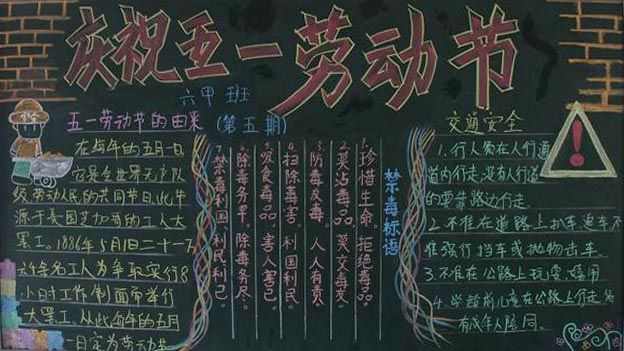 庆祝五一劳动节
六甲班
(第五期)
五一劳动节的由来
在每年的五月一日
它是全世界无产阶
级劳动人民的共同节日。此节
源于美国芝加哥的工人大
罢工。1886年5月1日二十一万
六千余名工人为争取实行8
小时工作制而举行
大罢工。从此每年的五月
一日定为劳动节
禁毒标语
1.珍惜生命。拒绝毒品。
2.莫沾毒品。莫交毒友。
3.防毒反毒。人人有责
4.扫除毒害。利国利民
5.吸食毒品。害人害己。
6.除毒务早。除毒务尽。
7.禁毒利国。利民利己。
交通安全
1.行人需在人行道
道内行走没有人行道
的要靠路边行走。
2.不准在道路上扒车追车不
准强行挡车或抛物击车
3.不准在公路上玩耍嬉闹
4.学龄前儿童在公路上行走需
有成年人陪同。